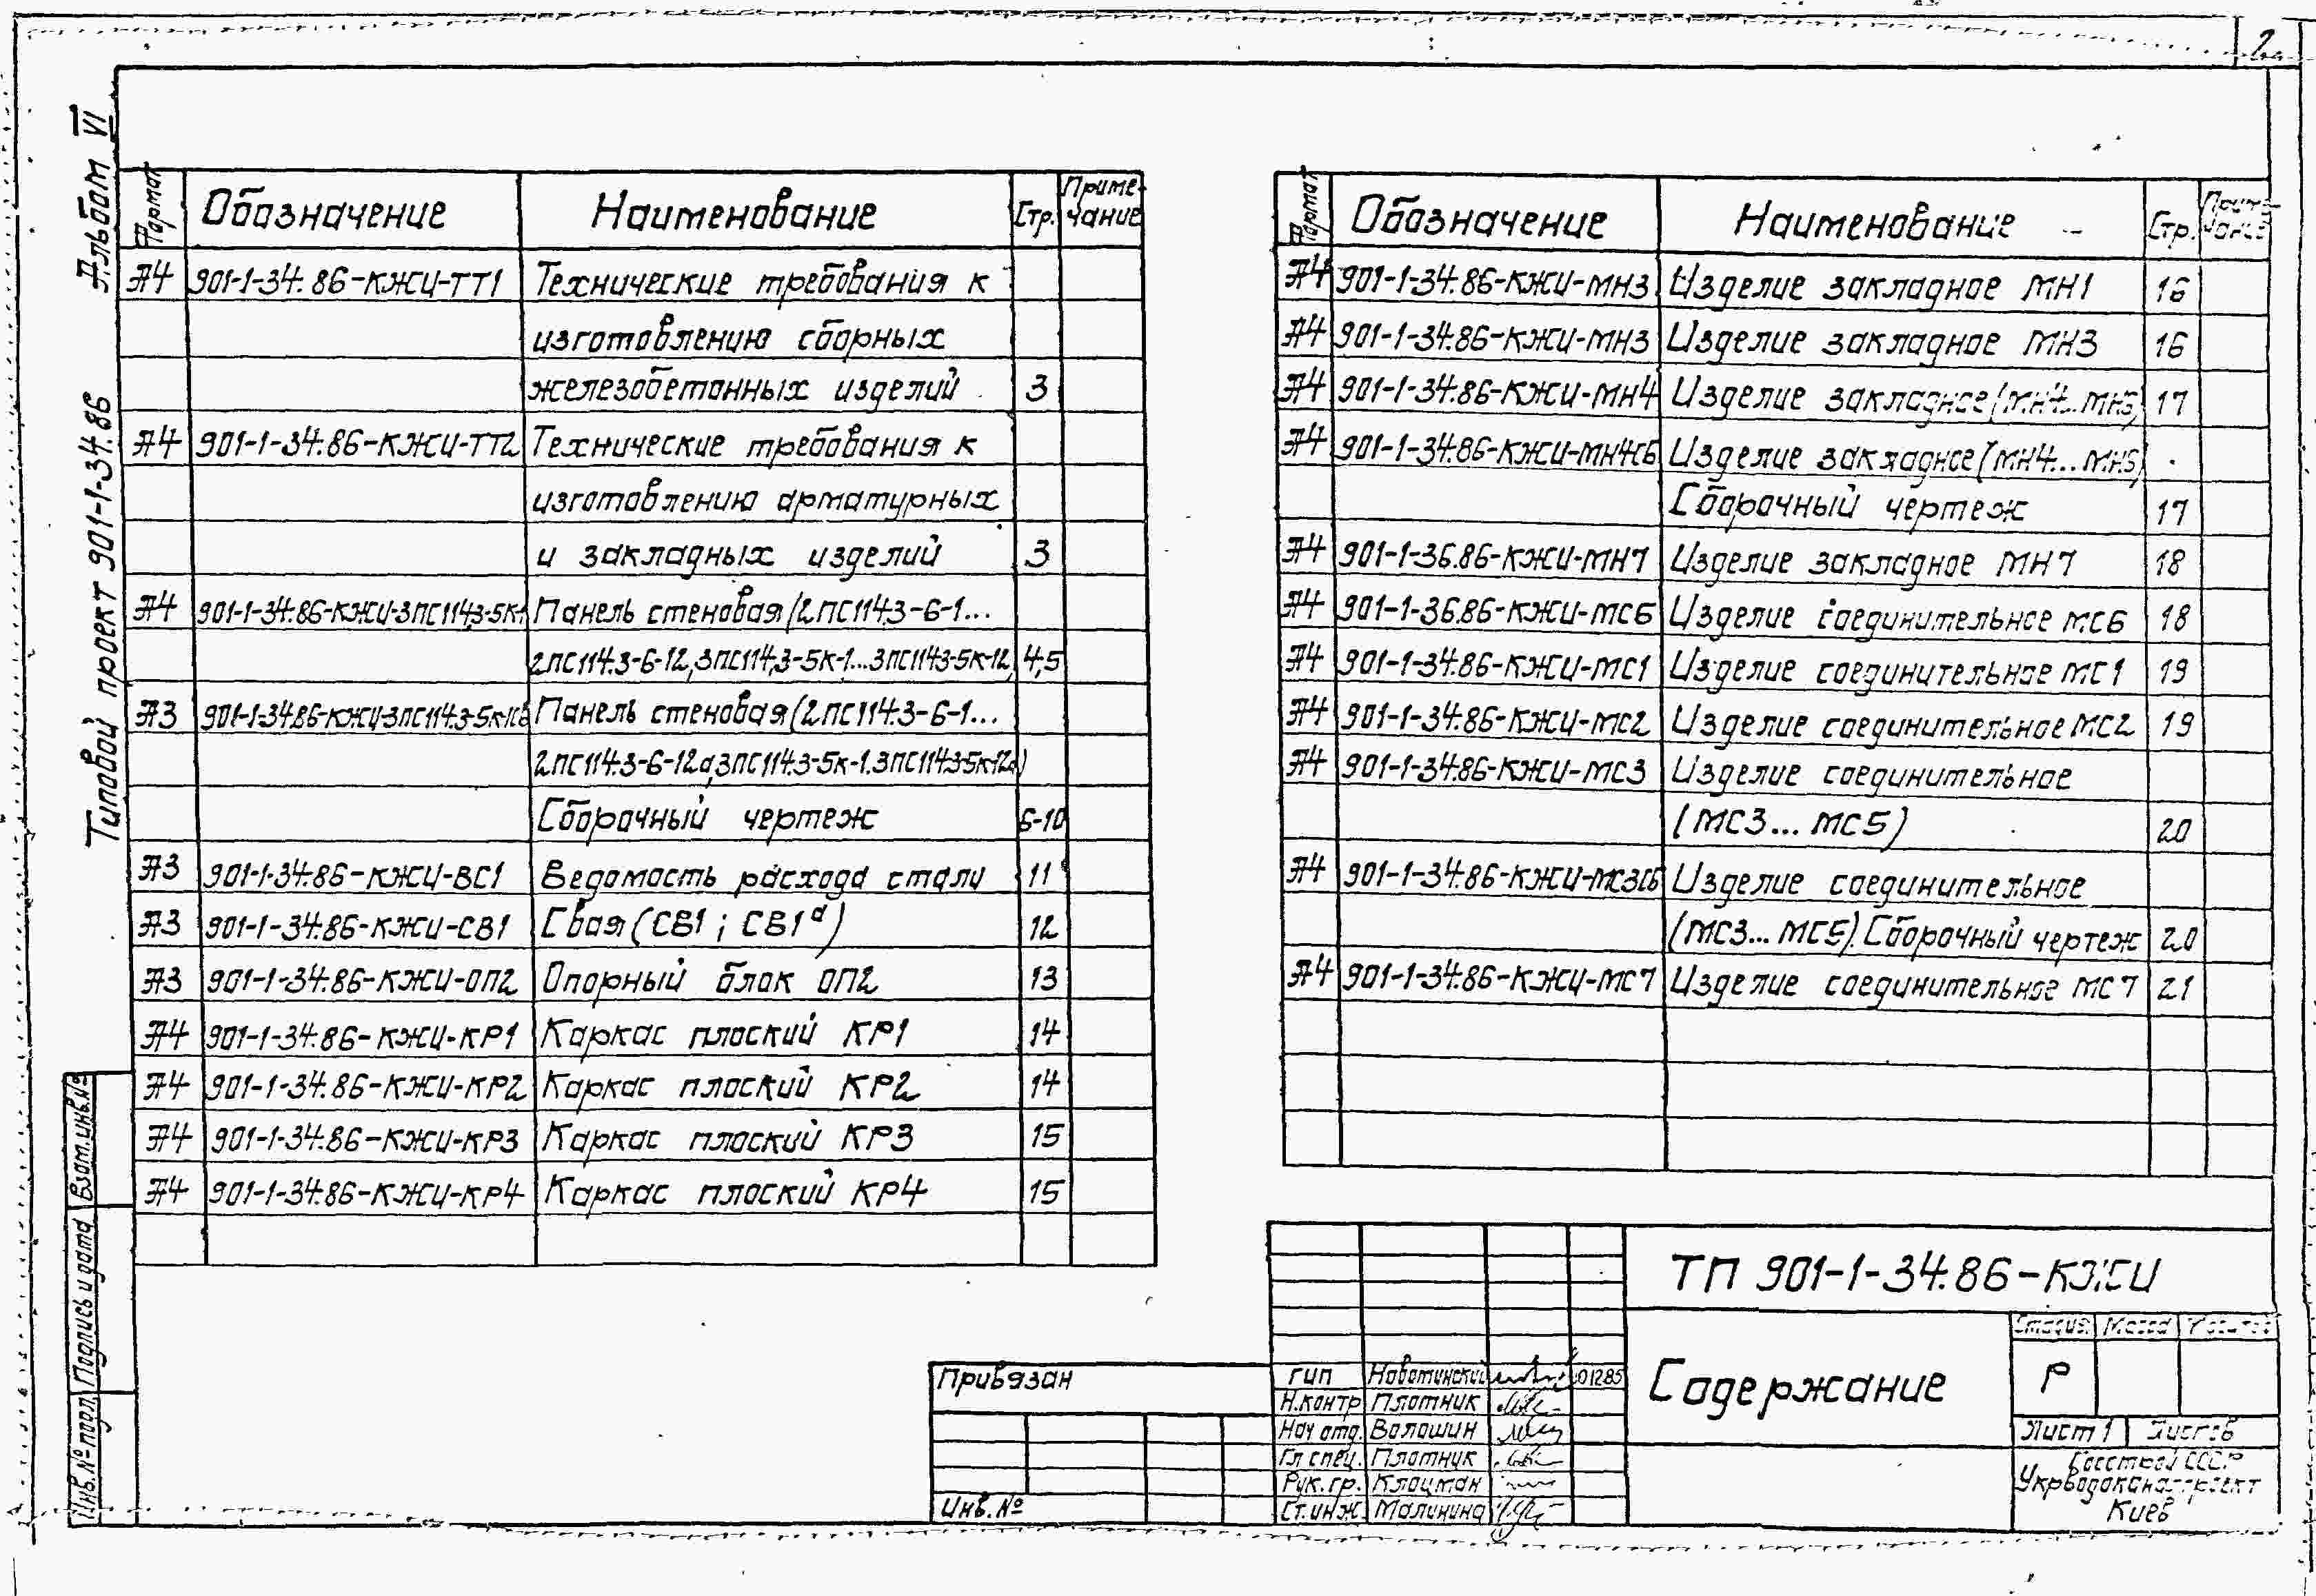 2
Альбом VI
Типовой проект 901-1-34.86
Формат Обозначение Наименование Стр. Приме-
чание
А4 901-1-34.86-КЖИ-ТТ1 Технические требования к
изготовлению сборных
железобетонных изделий 3
А4 901-1-34.86-КЖИ-ТТ2 Технические требования к
изготовлению арматурных
и закладных изделий 3
А4 901-1-34.86-КЖИ-3ПС114.3-5К-1 Панель стеновая (2ПС114.3-6-1...
2ПС114.3-6-12, 3ПС114,3-5К-1...3ПС114.3-5К-12, 4,5
А3 901-1-34.86-КЖИ-3ПС114.3-5К-1СБ Панель стеновая (2ПС114.3-6-1...
2ПС114.3-6-12а,3ПС114.3-5К-1.3ПС114.3-5К-12а)
Сборочный чертеж 6-10
А3 901-1-34.86-КЖИ-ВС1 Ведомость расхода стали 11
А3 901-1-34.86-КЖИ-СВ1 Свая (СВ1; СВ1а) 12
А3 901-1-34.86-КЖИ-ОП2 Опорный блок ОП2 13
А4 901-1-34.86-КЖИ-КР1 Каркас плоский КР1 14
А4 901-1-34.86-КЖИ-КР2 Каркас плоский КР2 14
А4 901-1-34.86-КЖИ-КР3 Каркас плоский КР3 15
А4 901-1-34.86-КЖИ-КР4 Каркас плоский КР4 15
Формат Обозначение Наименование Стр. Приме-
чание
А4 901-1-34.86-КЖИ-МН3 Изделие закладное МН1 16
А4 901-1-34.86-КЖИ-МН3 Изделие закладное МН3 16
А4 901-1-34.86-КЖИ-МН4 Изделие закладное (МН4...МН5) 17
А4 901-1-34.86-КЖИ-МН4СБ Изделие закладное (МН4...МН5)
Сборочный чертеж 17
А4 901-1-36.86-КЖИ-МН7 Изделие закладное МН7 18
А4 901-1-36.86-КЖИ-МС6 Изделие соединительное МС6 18
А4 901-1-34.86-КЖИ-МС1 Изделие соединительное МС1 19
А4 901-1-34.86-КЖИ-МС2 Изделие соединительное МС2 19
А4 901-1-34.86-КЖИ-МС3 Изделие соединительное
(МС3...МС5) 20
А4 901-1-34.86-КЖИ-МС3СБ Изделие соединительное
(МС3...МС5). Сборочный чертеж 20
А4 901-1-34.86-КЖИ-МС7 Изделие соединительное МС7 21
Взам.инв.№
Подпись и дата
Инв.№ подл.
Привязан
Инв.№
ТП 901-1-34.86-КЖИ
ГИП Новотинский 01285
Н.контр Плотник
Нач отд. Волошин
Гл спец. Плотник
Рук.гр. Клоцман
Ст.инж. Малинина
Содержание
Стадия Масса Масштаб
Р
Лист 1 Листов
Госстрой СССР
Укрводоканалпроект
Киев